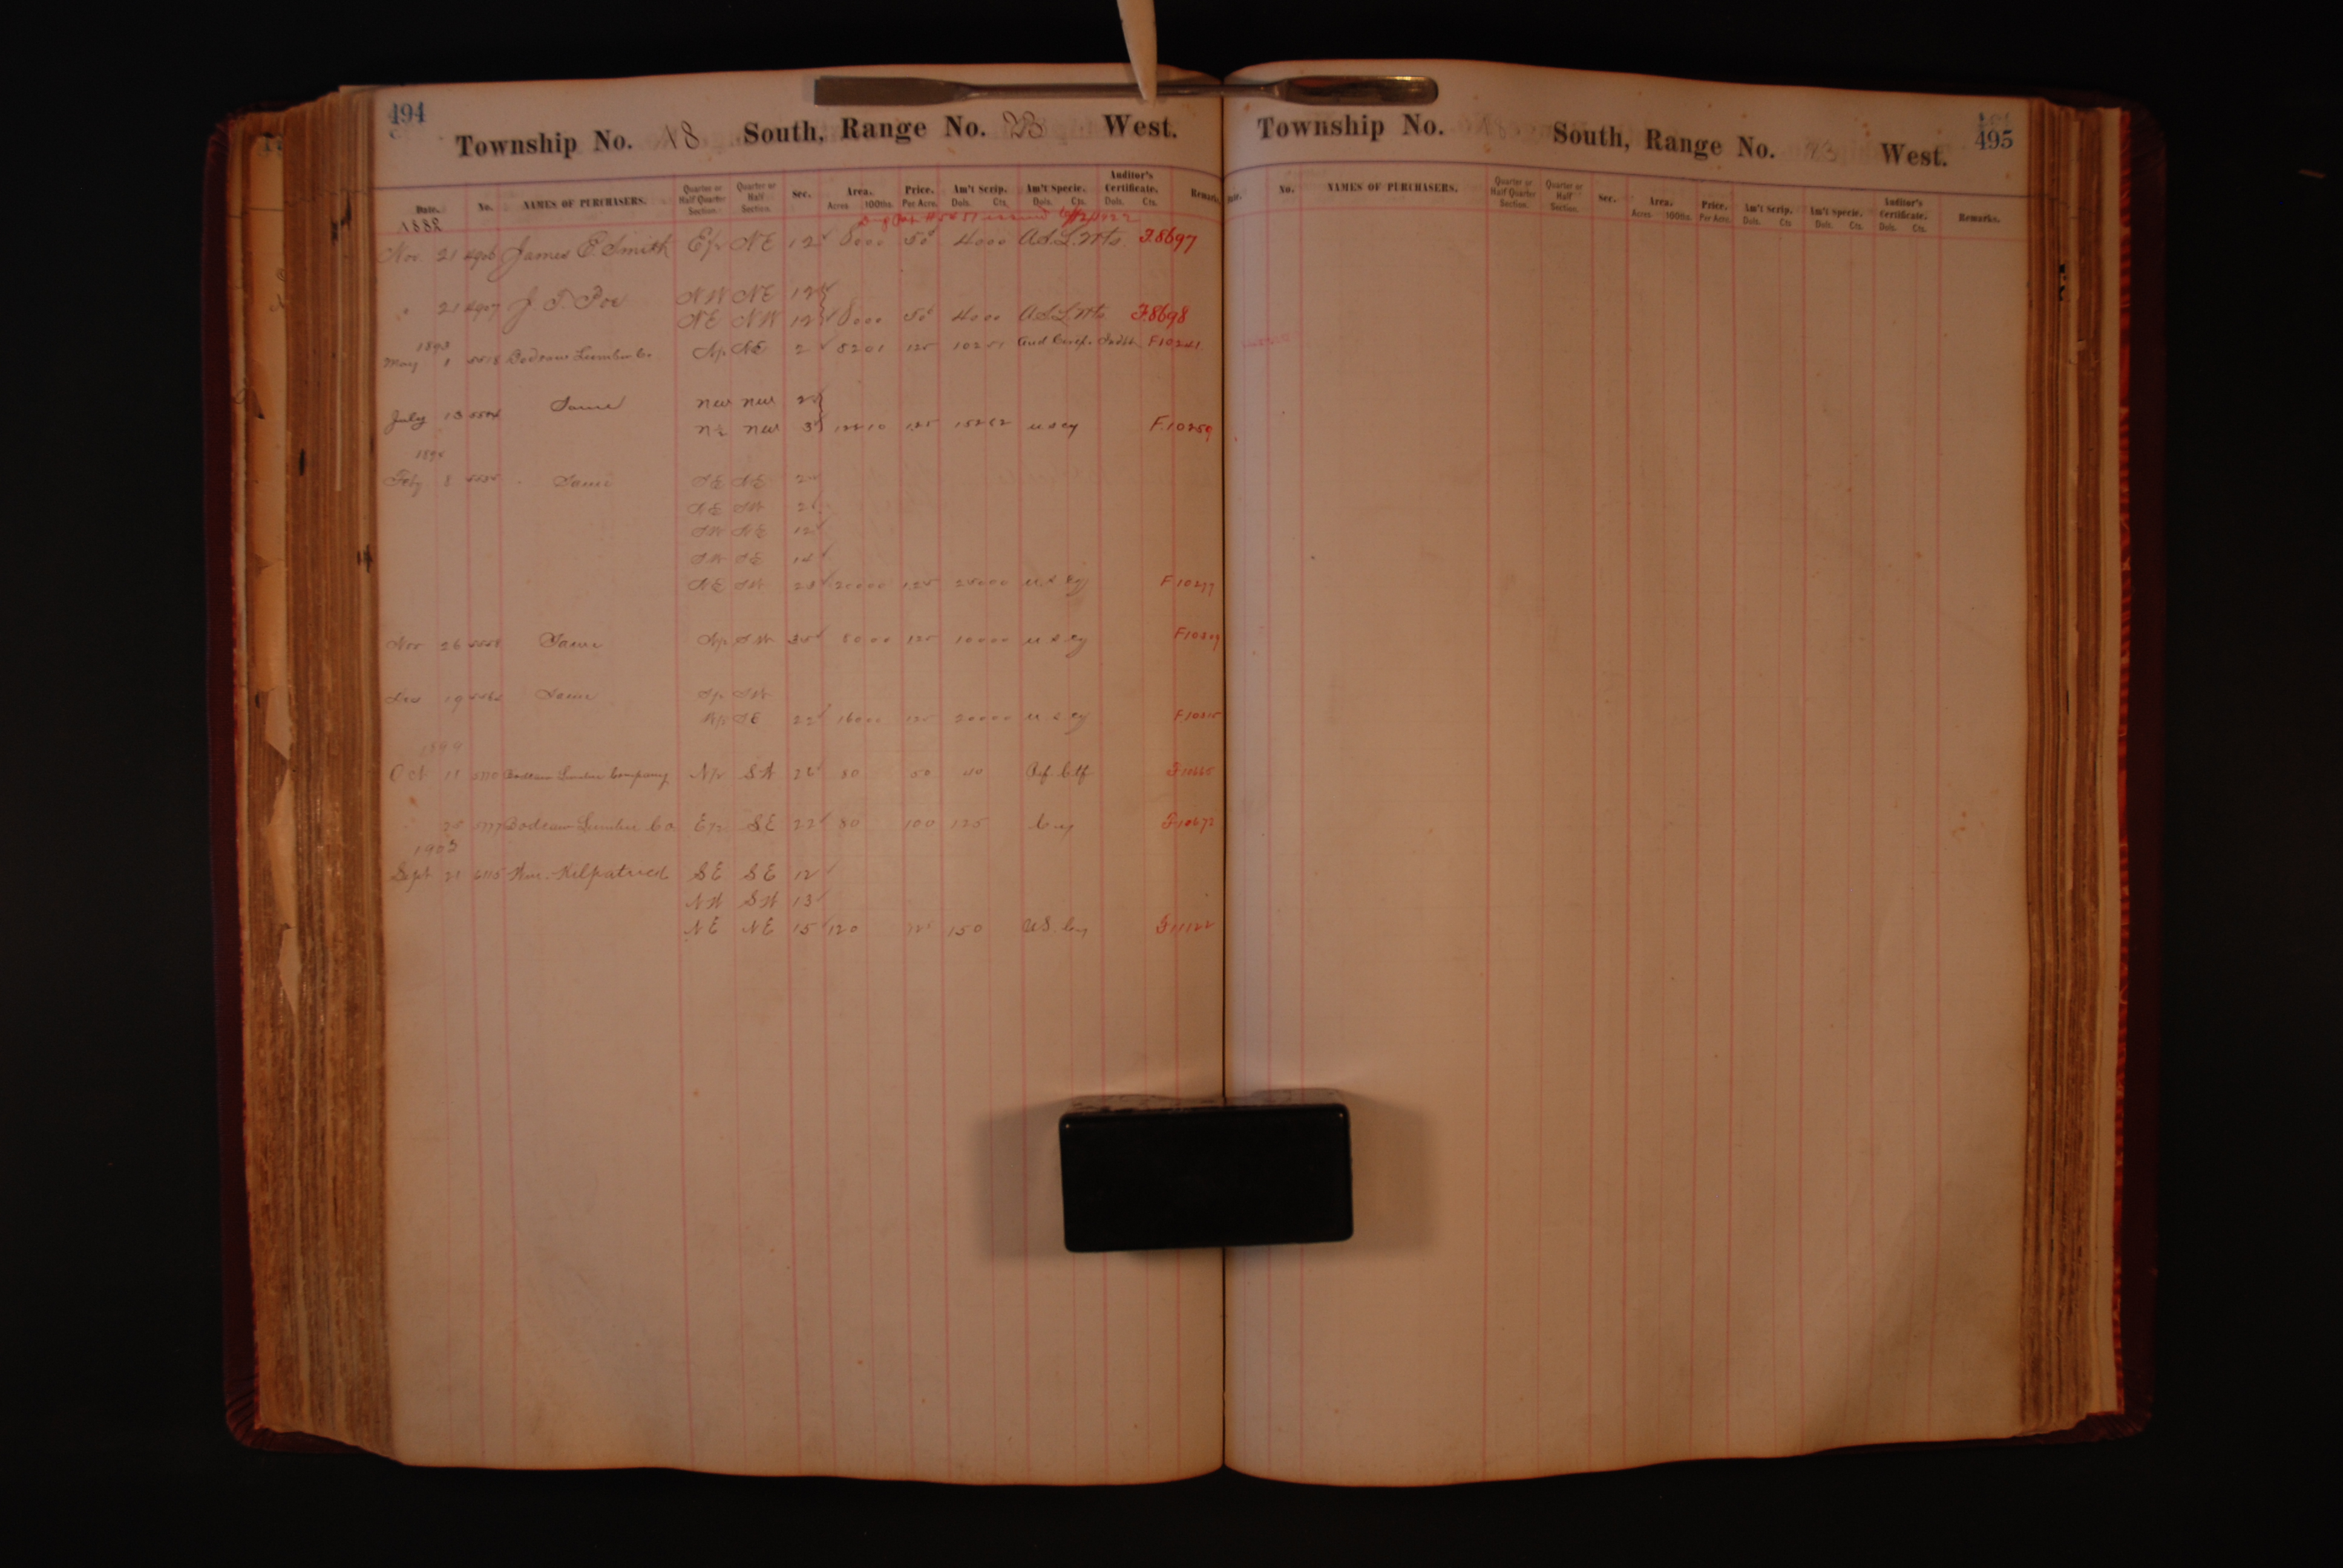 494
Township No. 18 South, Range No. 23 West.
Date. No. NAMES OF PURCHASERS. Quarter or Half Quarter Section. Quarter or Half Section. Sec. Area. Acres 100ths. Price. Per Acre. Am't Scrip. Dols. Cts. Am't Specie. Dols. Cts. Auditor's Certificate. Dols. Cts. Remarks
1882
Nov. 21 4906 James E. Smith E/2 NE 12 8000 50 4000 A.S.L. Wts. F.8697
" 21 4907 J. T. Poe NW NE 12
NE NW 12 8000 50 4000 A.S.L. Wts F.8698
1893
May 1 5518 Bodcaw Lumber Co. N/2 NE 2 8201 125 10251 F10241
July 13 Same NW NW 2
N½ NW 3 12210 1.25 15262 U S Cy F.10259
Feby 8 Same SE NE 2
NE SW 2
SW NE 12
SW SE 14
NE SW 20000 1.25 25000 U. S Cy F10277
Nov 26 Same N/2 SW 8000 125 10000 U S Cy
Dec 19 Same S/2 SW
SE 22 16000 125 20000 U S Cy
1899
Oct 11 Bodcaw Lumber Company N/2 SW 80 50 40
25 5777 Bodcaw Lumber Co E/2 SE 22 80 100 125 Cuy F10672
1903
Sept 21 6115 Wm. Kilpatrick SE SE 12
NW SW 13
NE NE 15 120 125 150 US. Cuy F11122
495
Township No. South, Range No. 23 West.
Date. No. NAMES OF PURCHASERS. Quarter or Half Quarter Section. Quarter or Half Section. Sec. Area. Acres 100ths. Price. Per Acre. Am't Scrip. Dols. Cts Am't Specie. Dols. Cts. Auditor's Certificate. Dols. Cts. Remarks.